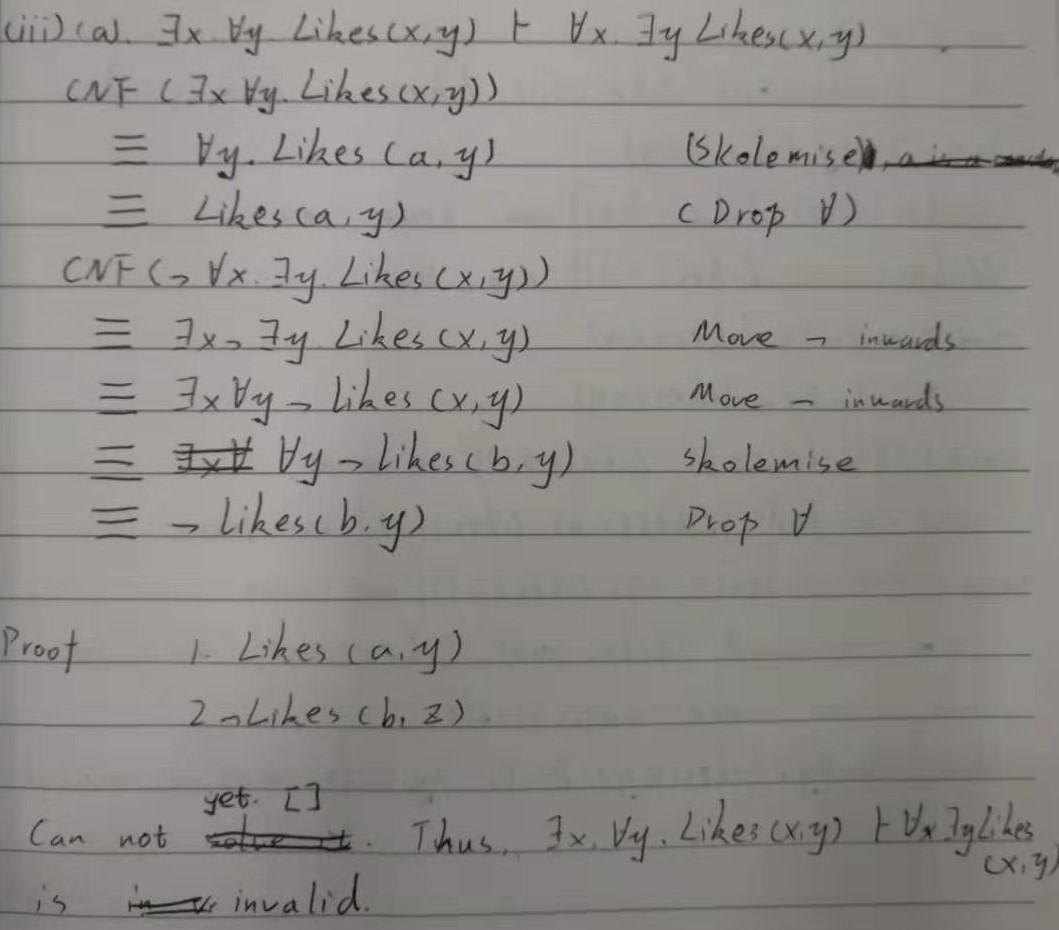 (iii) (a). ∃x ∀y Likes(x,y) ⊢ ∀x. ∃y Likes(x,y)
CNF (∃x ∀y. Likes(x,y))
≡ ∀y. Likes (a,y) (Skolemise)
≡ Likes(a,y) (Drop ∀)
CNF(¬ ∀x. ∃y. Likes(x,y))
≡ ∃x¬ ∃y Likes (x,y) Move ¬ inwards
≡ ∃x∀y ¬ likes (x,y) Move ¬ inwards
≡ ∀y ¬ likes(b,y) skolemise
≡ ¬ likes(b,y) Drop ∀
Proof 1. Likes (a,y)
2 ¬Likes (b, z).
yet. []
Can not . Thus, ∃x. ∀y. Likes(x,y) ⊢ ∀x ∃y Likes
(x,y)
is invalid.